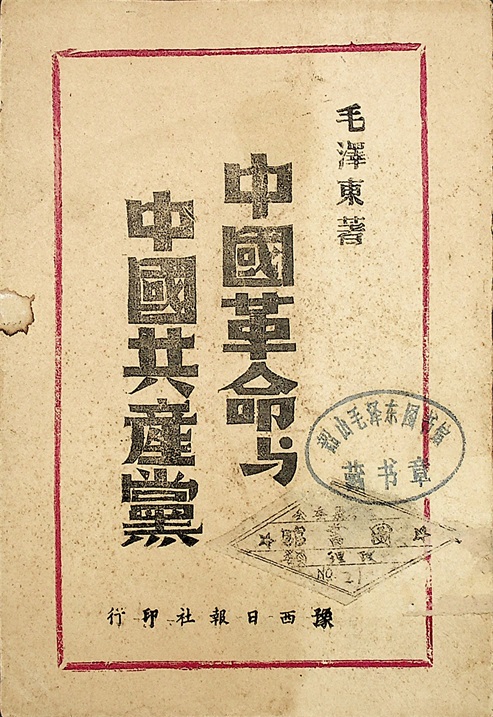 毛澤東著
中國革命与
中國共產黨
韶山毛泽东图书馆
藏书章
NO. 21
豫西日報社印行